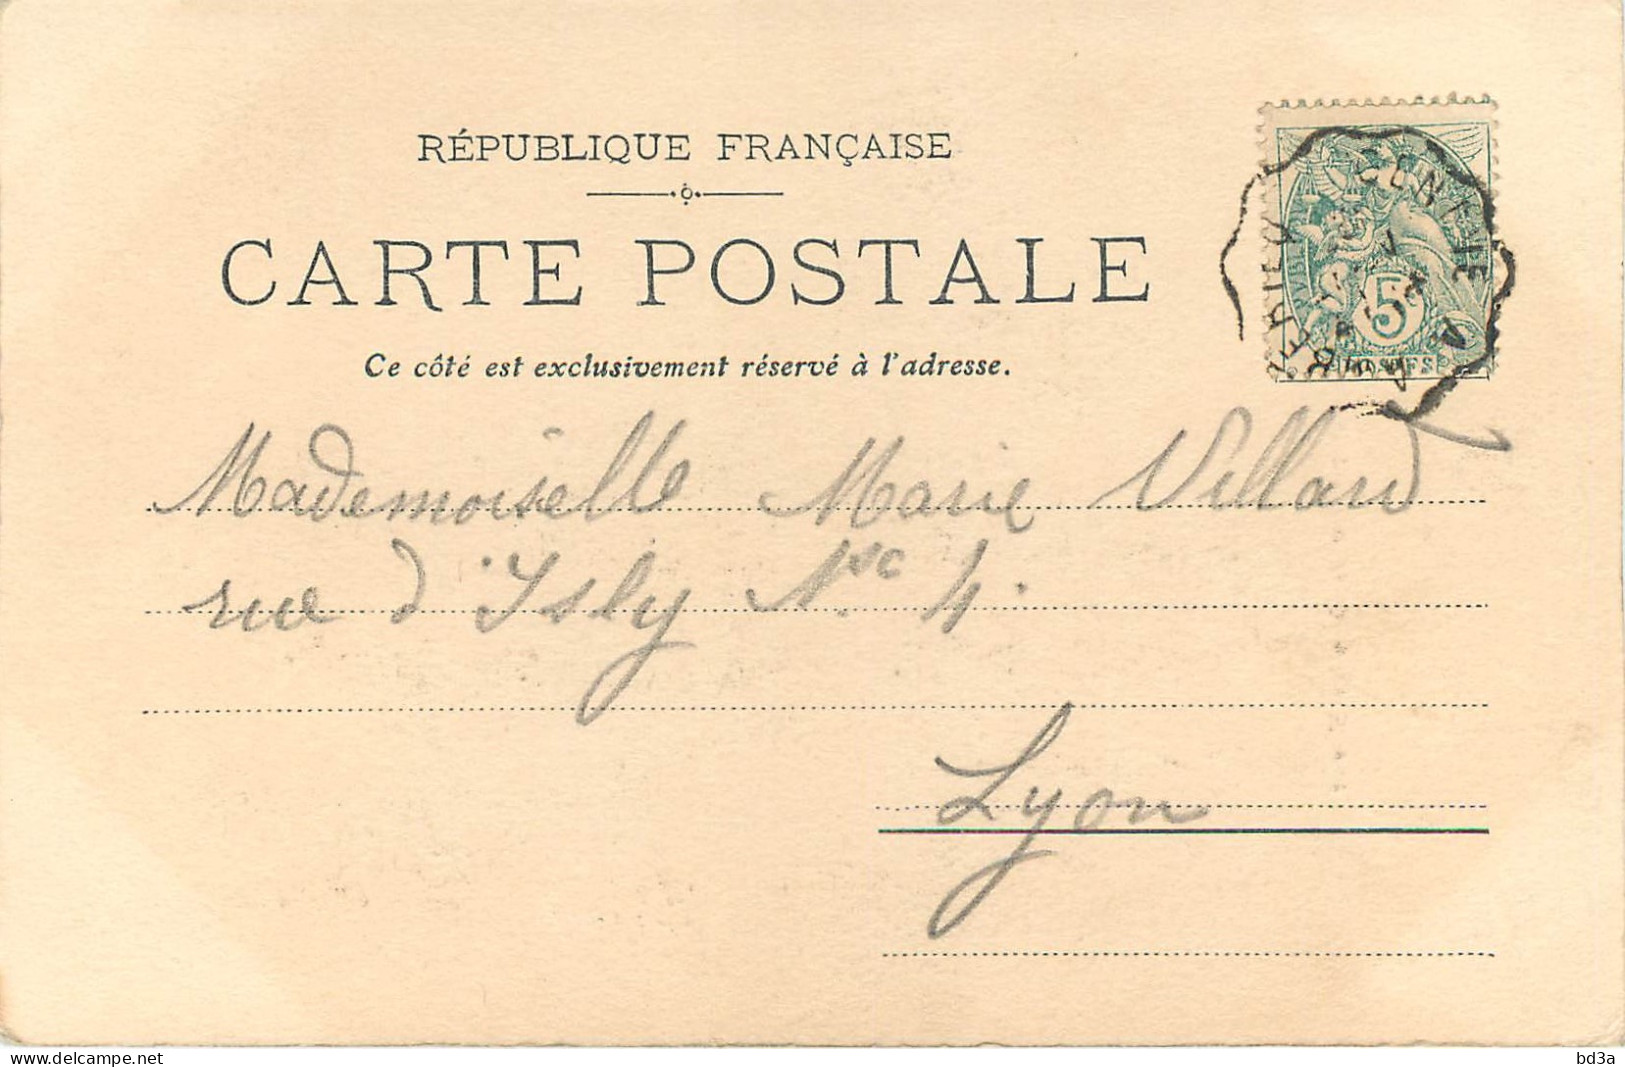 RÉPUBLIQUE FRANÇAISE
CARTE POSTALE
Ce côté est exclusivement réservé à l'adresse.
5
Mademoiselle Marie Villard
rue d'Isly N. 4.
Lyon
www.delcampe.net
bd3a